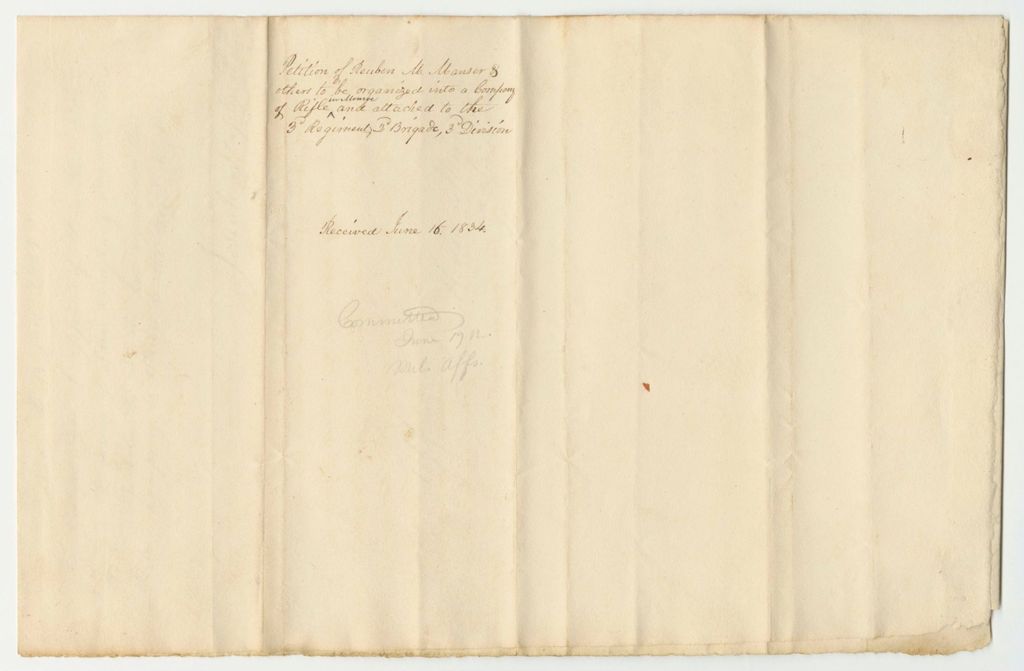 Petition of Reuben M. Manser &
others to be organized into a Company
of Rifle in Monroe and attached to the
3d Regiment, 2d Brigade, 3d Division
Received June 16. 1834.
Committed
June 17
Mil. Affs.